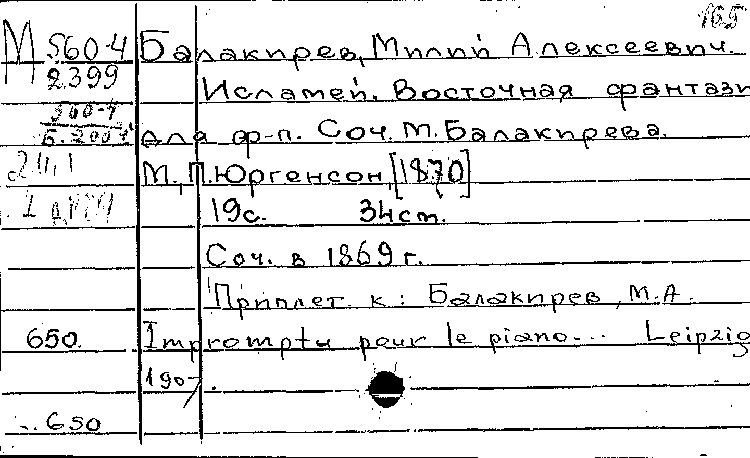 165
М 560-4
2399
560-4
Б. 2007
Балакирев, Милий Алексеевич.
Исламей. Восточная фантази
для ф-п. Соч. М. Балакирева.
М., П. Юргенсон, [1870]
19с. 34 cm.
Соч. в 1869 г.
Приплет. к: Балакирев, М.А.
650. Impromptu pour le piano... Leipzig
1907.
650